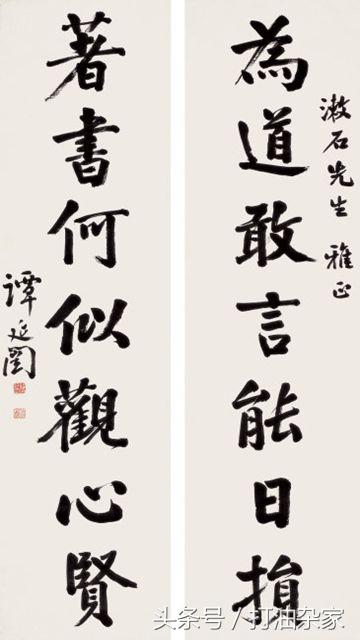 漱石先生 雅正
為道敢言能日損
著書何似觀心賢
譚延闓
头条号 / 打油杂家